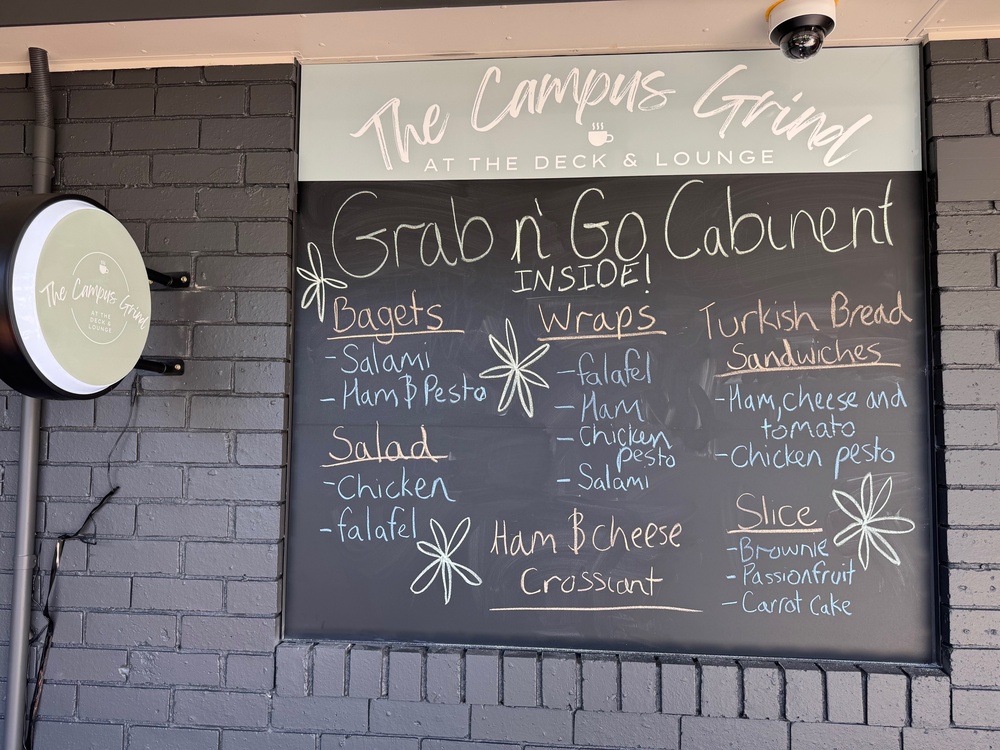 The Campus Grind
AT THE DECK & LOUNGE
The Campus Grind
AT THE
DECK &
LOUNGE
Grab n' Go Cabinent
INSIDE!
Bagets
- Salami
- Ham $ Pesto
Salad
- Chicken
- falafel
Wraps
- falafel
- Ham
- Chicken
pesto
- Salami
Ham $ cheese
Crossiant
Turkish Bread
Sandwiches
- Ham, cheese and
tomato
- Chicken pesto
Slice
- Brownie
- Passionfruit
- Carrot Cake